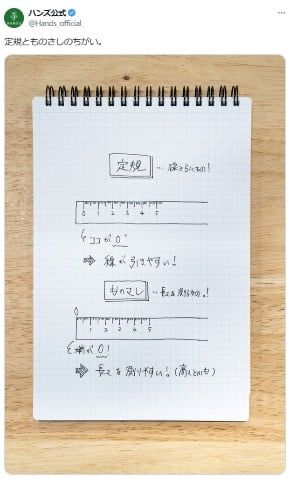 ハンズ公式
@Hands_official
定規とものさしのちがい。
HANDS
定規 … 線を引くもの!
0 1 2 3 4 5
ココが0
⇒ 線が引きやすい!
ものさし … 長さを測るもの!
0
1 2 3 4 5
端が0!
⇒ 長さを測りやすい!(高さとかも)